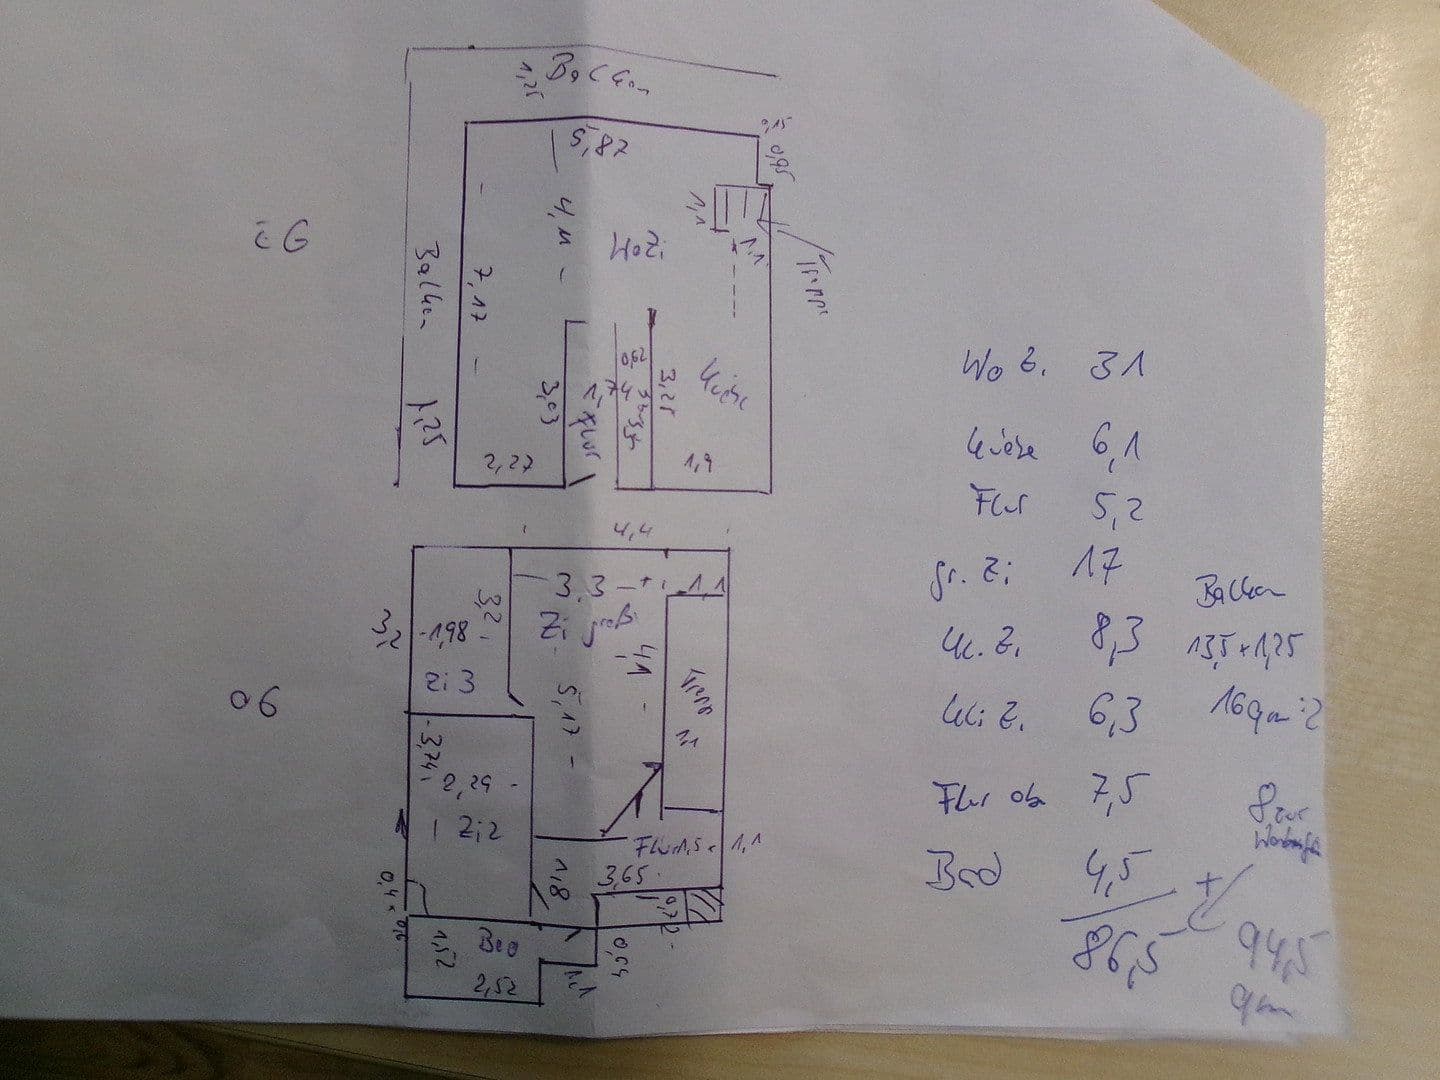 Balkon
1,25
0,15
0,95
5,87
4,11
1,1
1,1
WoZi
Balkon 1,25
7,17
0,62
3,25
Küche
3,03
1,74
Flur
2,27
1,9
4,4
3,3
1,1
3,2
Zi groß
3,2
1,98
4,1
Zi 3
5,17
3,74
2,29
Zi 2
Flur 1,5 × 1,1
1,8
3,65
0,4 × 0,6
0,72
1,52
Bad
0,54
2,52
1,1
Wo Z. 31
Küche 6,1
Flur 5,2
gr. Zi 17
Kl. Z. 8,3
Kli Z. 6,3
Flur ob 7,5
Bad 4,5
86,5
Balkon
13,5 × 1,25
16 qm : 2
8 zur
+
94,5
qm